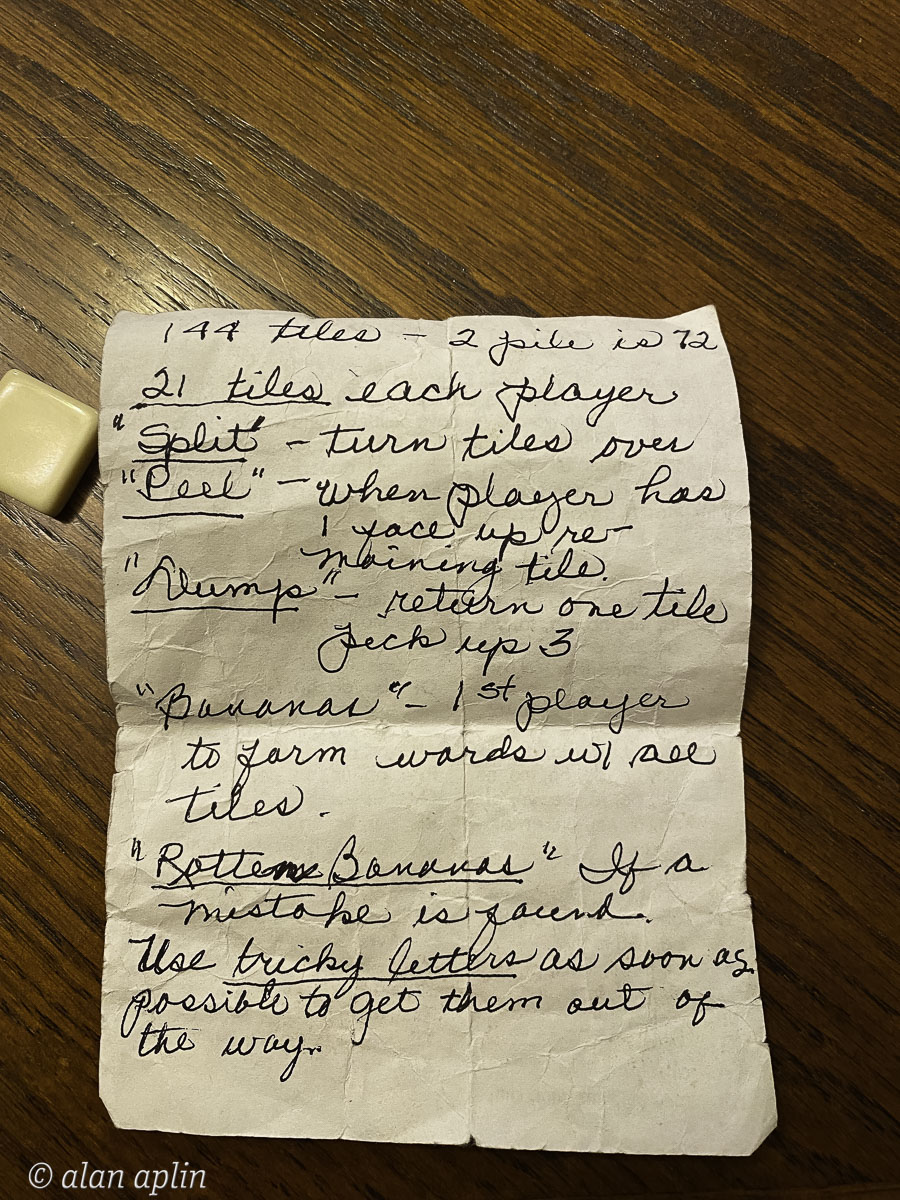 144 tiles - 2 pile is 72
21 tiles each player
"Split" - turn tiles over
"Peel" - when player has
1 face up re-
maining tile.
"Dump" - return one tile
pick up 3
"Bananas" - 1st player
to form words w/ all
tiles.
"Rotten Bananas" If a
mistake is found.
Use tricky letters as soon as
possible to get them out of
the way.
© alan aplin